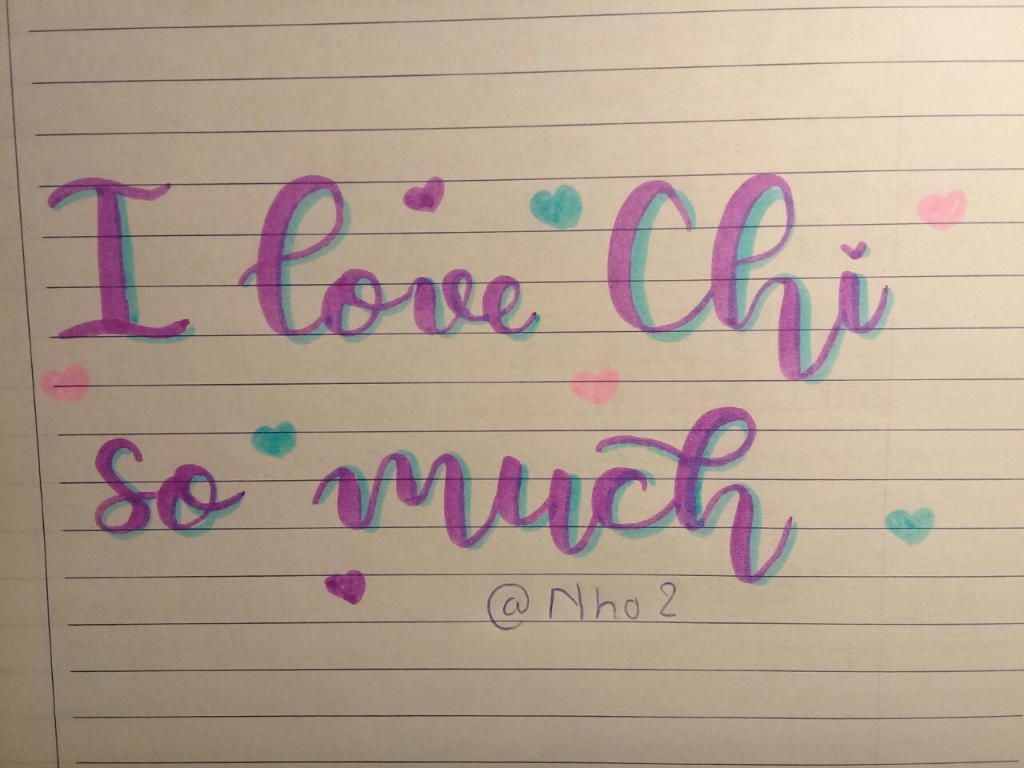 I love Chi
so much
@Nho2